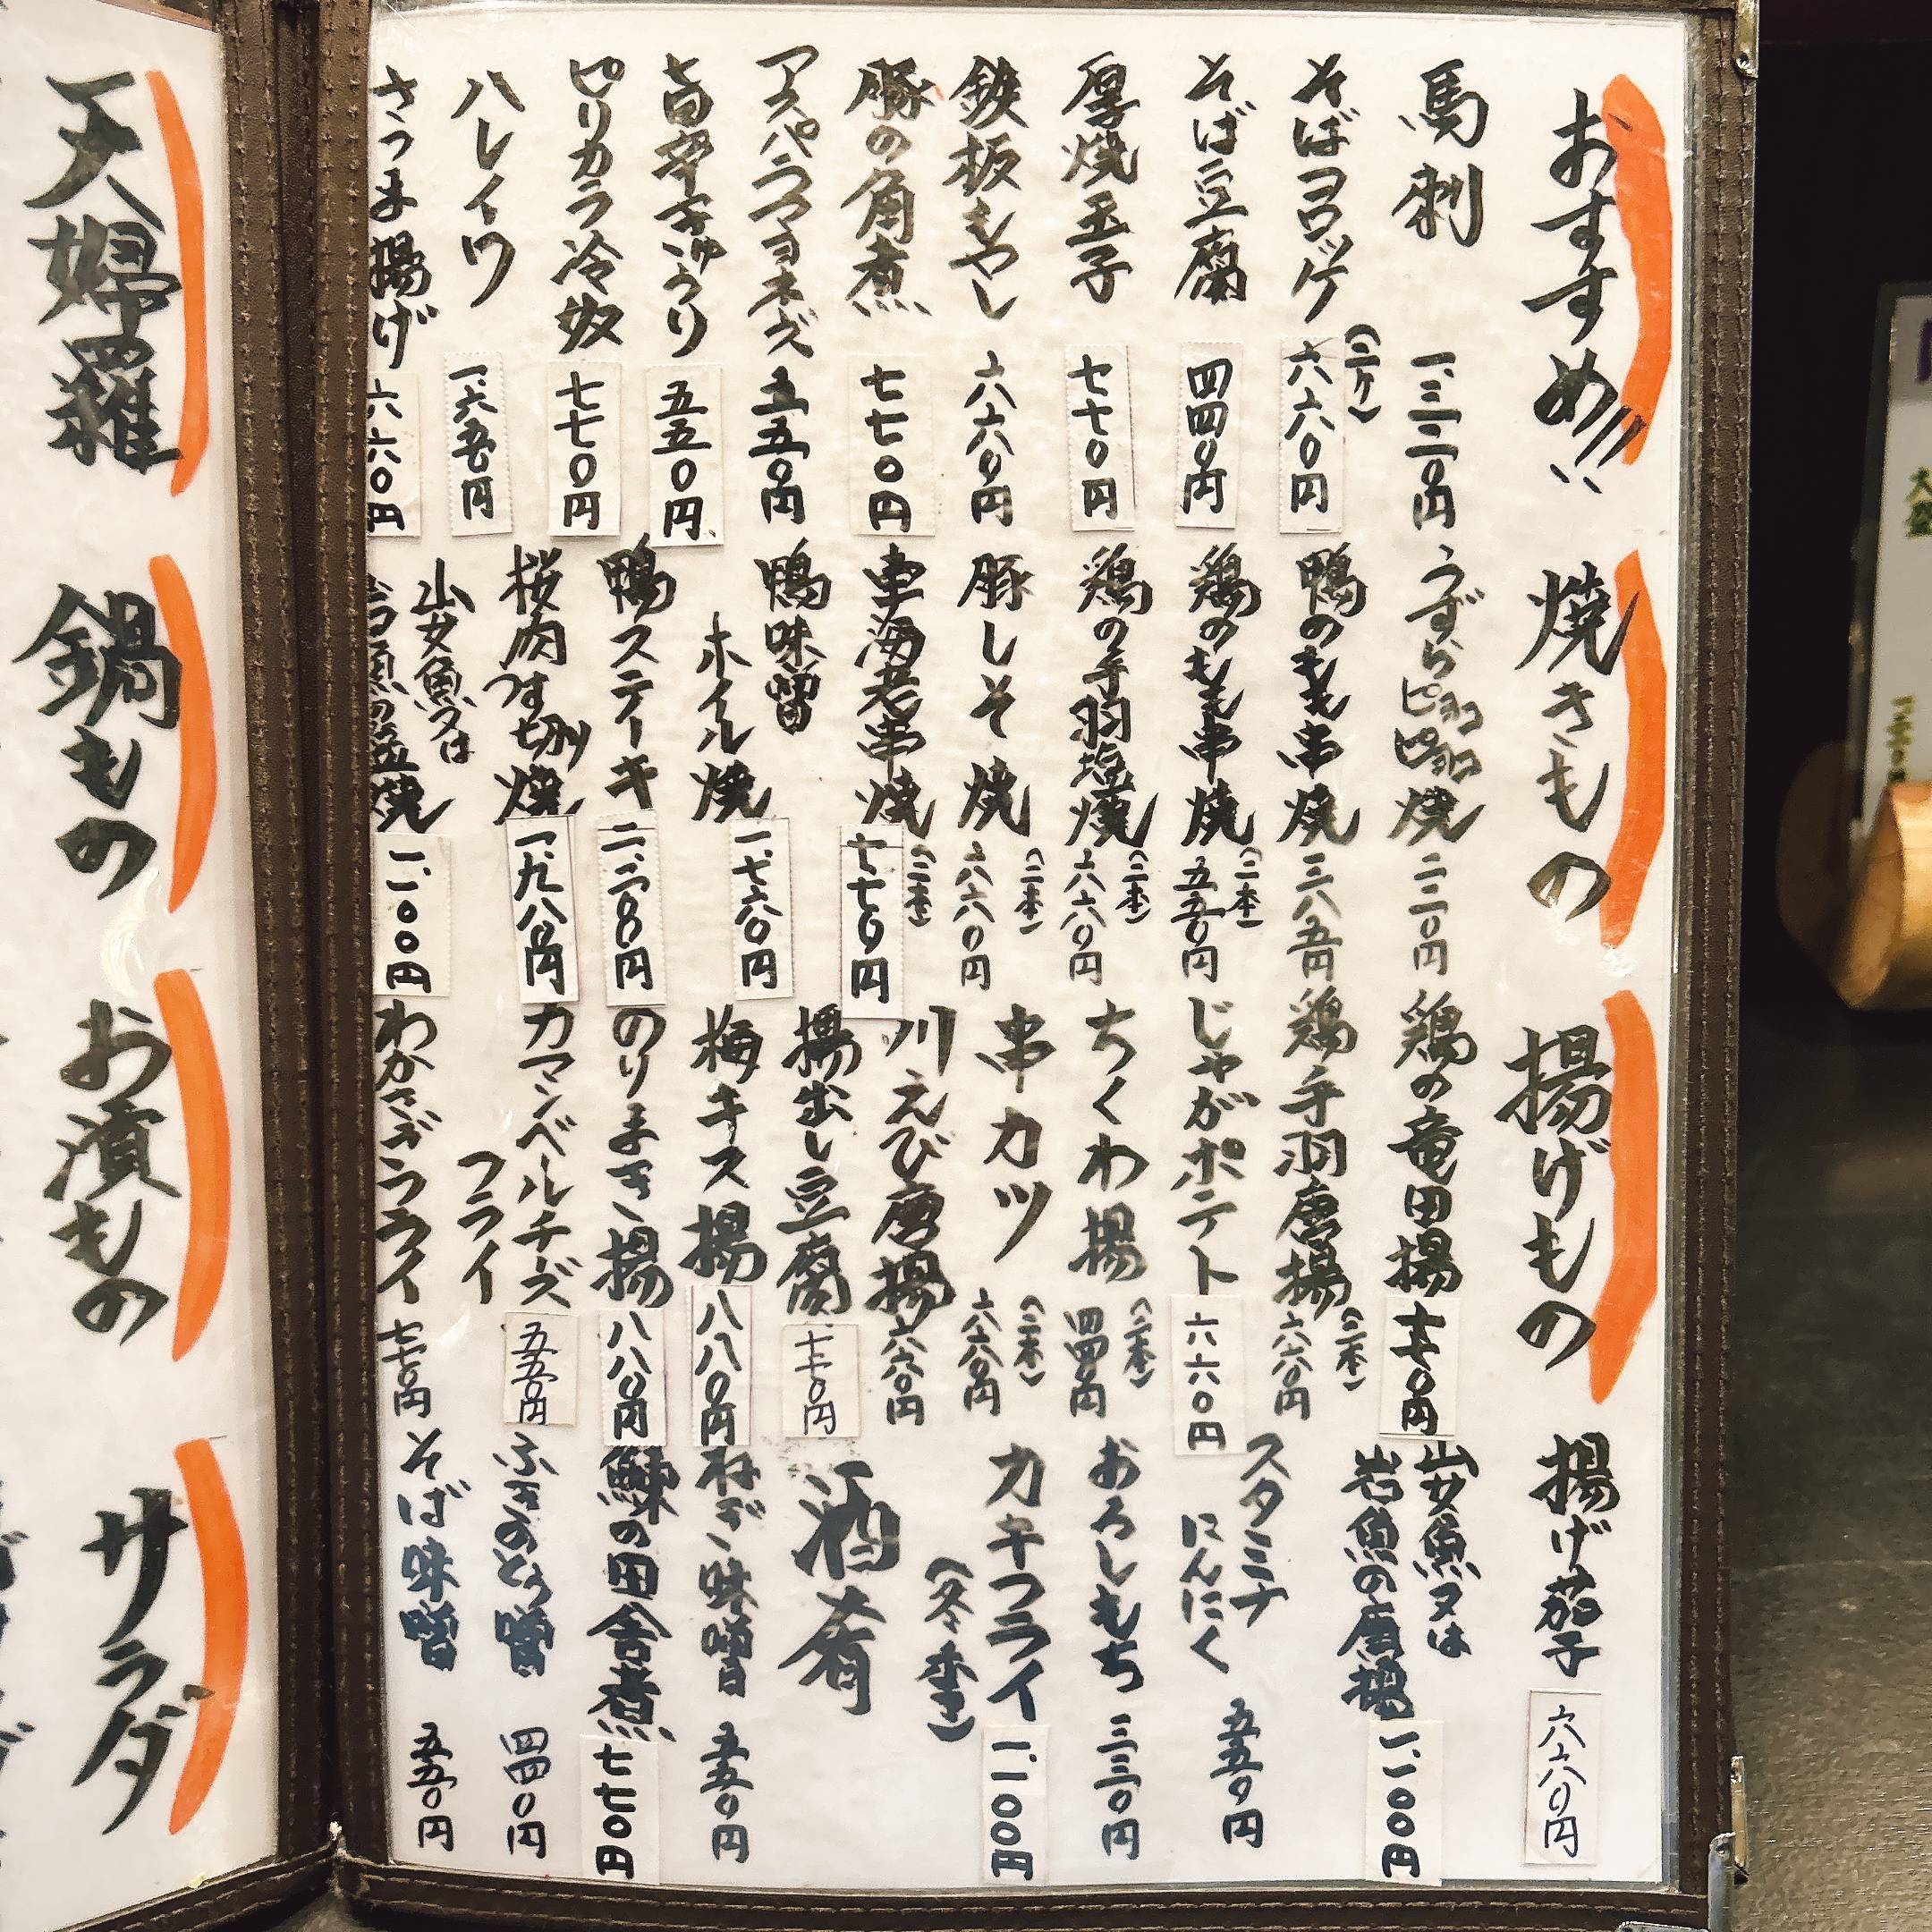 おすすめ!!
馬刺 一、三二〇円
そばコロッケ (二ケ) 六六〇円
そば豆腐 四四〇円
厚焼玉子 七七〇円
鉄板もやし 六六〇円
豚の角煮 七七〇円
アスパラマヨネーズ 五五〇円
旨辛きゅうり 五五〇円
ピリカラ冷奴 七七〇円
ハレイワ 一、六五〇円
さつま揚げ 六六〇円
焼きもの
うずらピヨコピヨコ焼 二二〇円
鴨のもも串焼 三八五円
鶏のもも串焼 (二本) 五五〇円
鶏の手羽塩焼 (二本) 六六〇円
豚しそ焼 (二本) 六六〇円
車海老串焼 (二本) 七七〇円
鴨味噌
ホイル焼 一、七六〇円
鴨ステーキ 二、二〇〇円
桜肉うす切り焼 一、九八〇円
山女魚又は
岩魚の塩焼 一、一〇〇円
揚げもの
鶏の竜田揚 七七〇円
鶏手羽唐揚 (二本) 六六〇円
じゃがポテト 六六〇円
ちくわ揚 (二本) 四四〇円
串カツ (二本) 六六〇円
川えび唐揚 六六〇円
揚出し豆腐 七七〇円
梅キス揚 八八〇円
のりまき揚 八八〇円
カマンベールチーズ
フライ 五五〇円
わかさぎフライ 七七〇円
揚げ茄子 六六〇円
山女魚又は
岩魚の唐揚 一、一〇〇円
スタミナ
にんにく 五五〇円
おろしもち 三三〇円
カキフライ
(冬季) 一、一〇〇円
酒肴
ねぎ味噌 五五〇円
鰊の田舎煮 七七〇円
ふきのとう味噌 四四〇円
そば味噌 五五〇円
天婦羅
鍋もの
お漬もの
サラダ